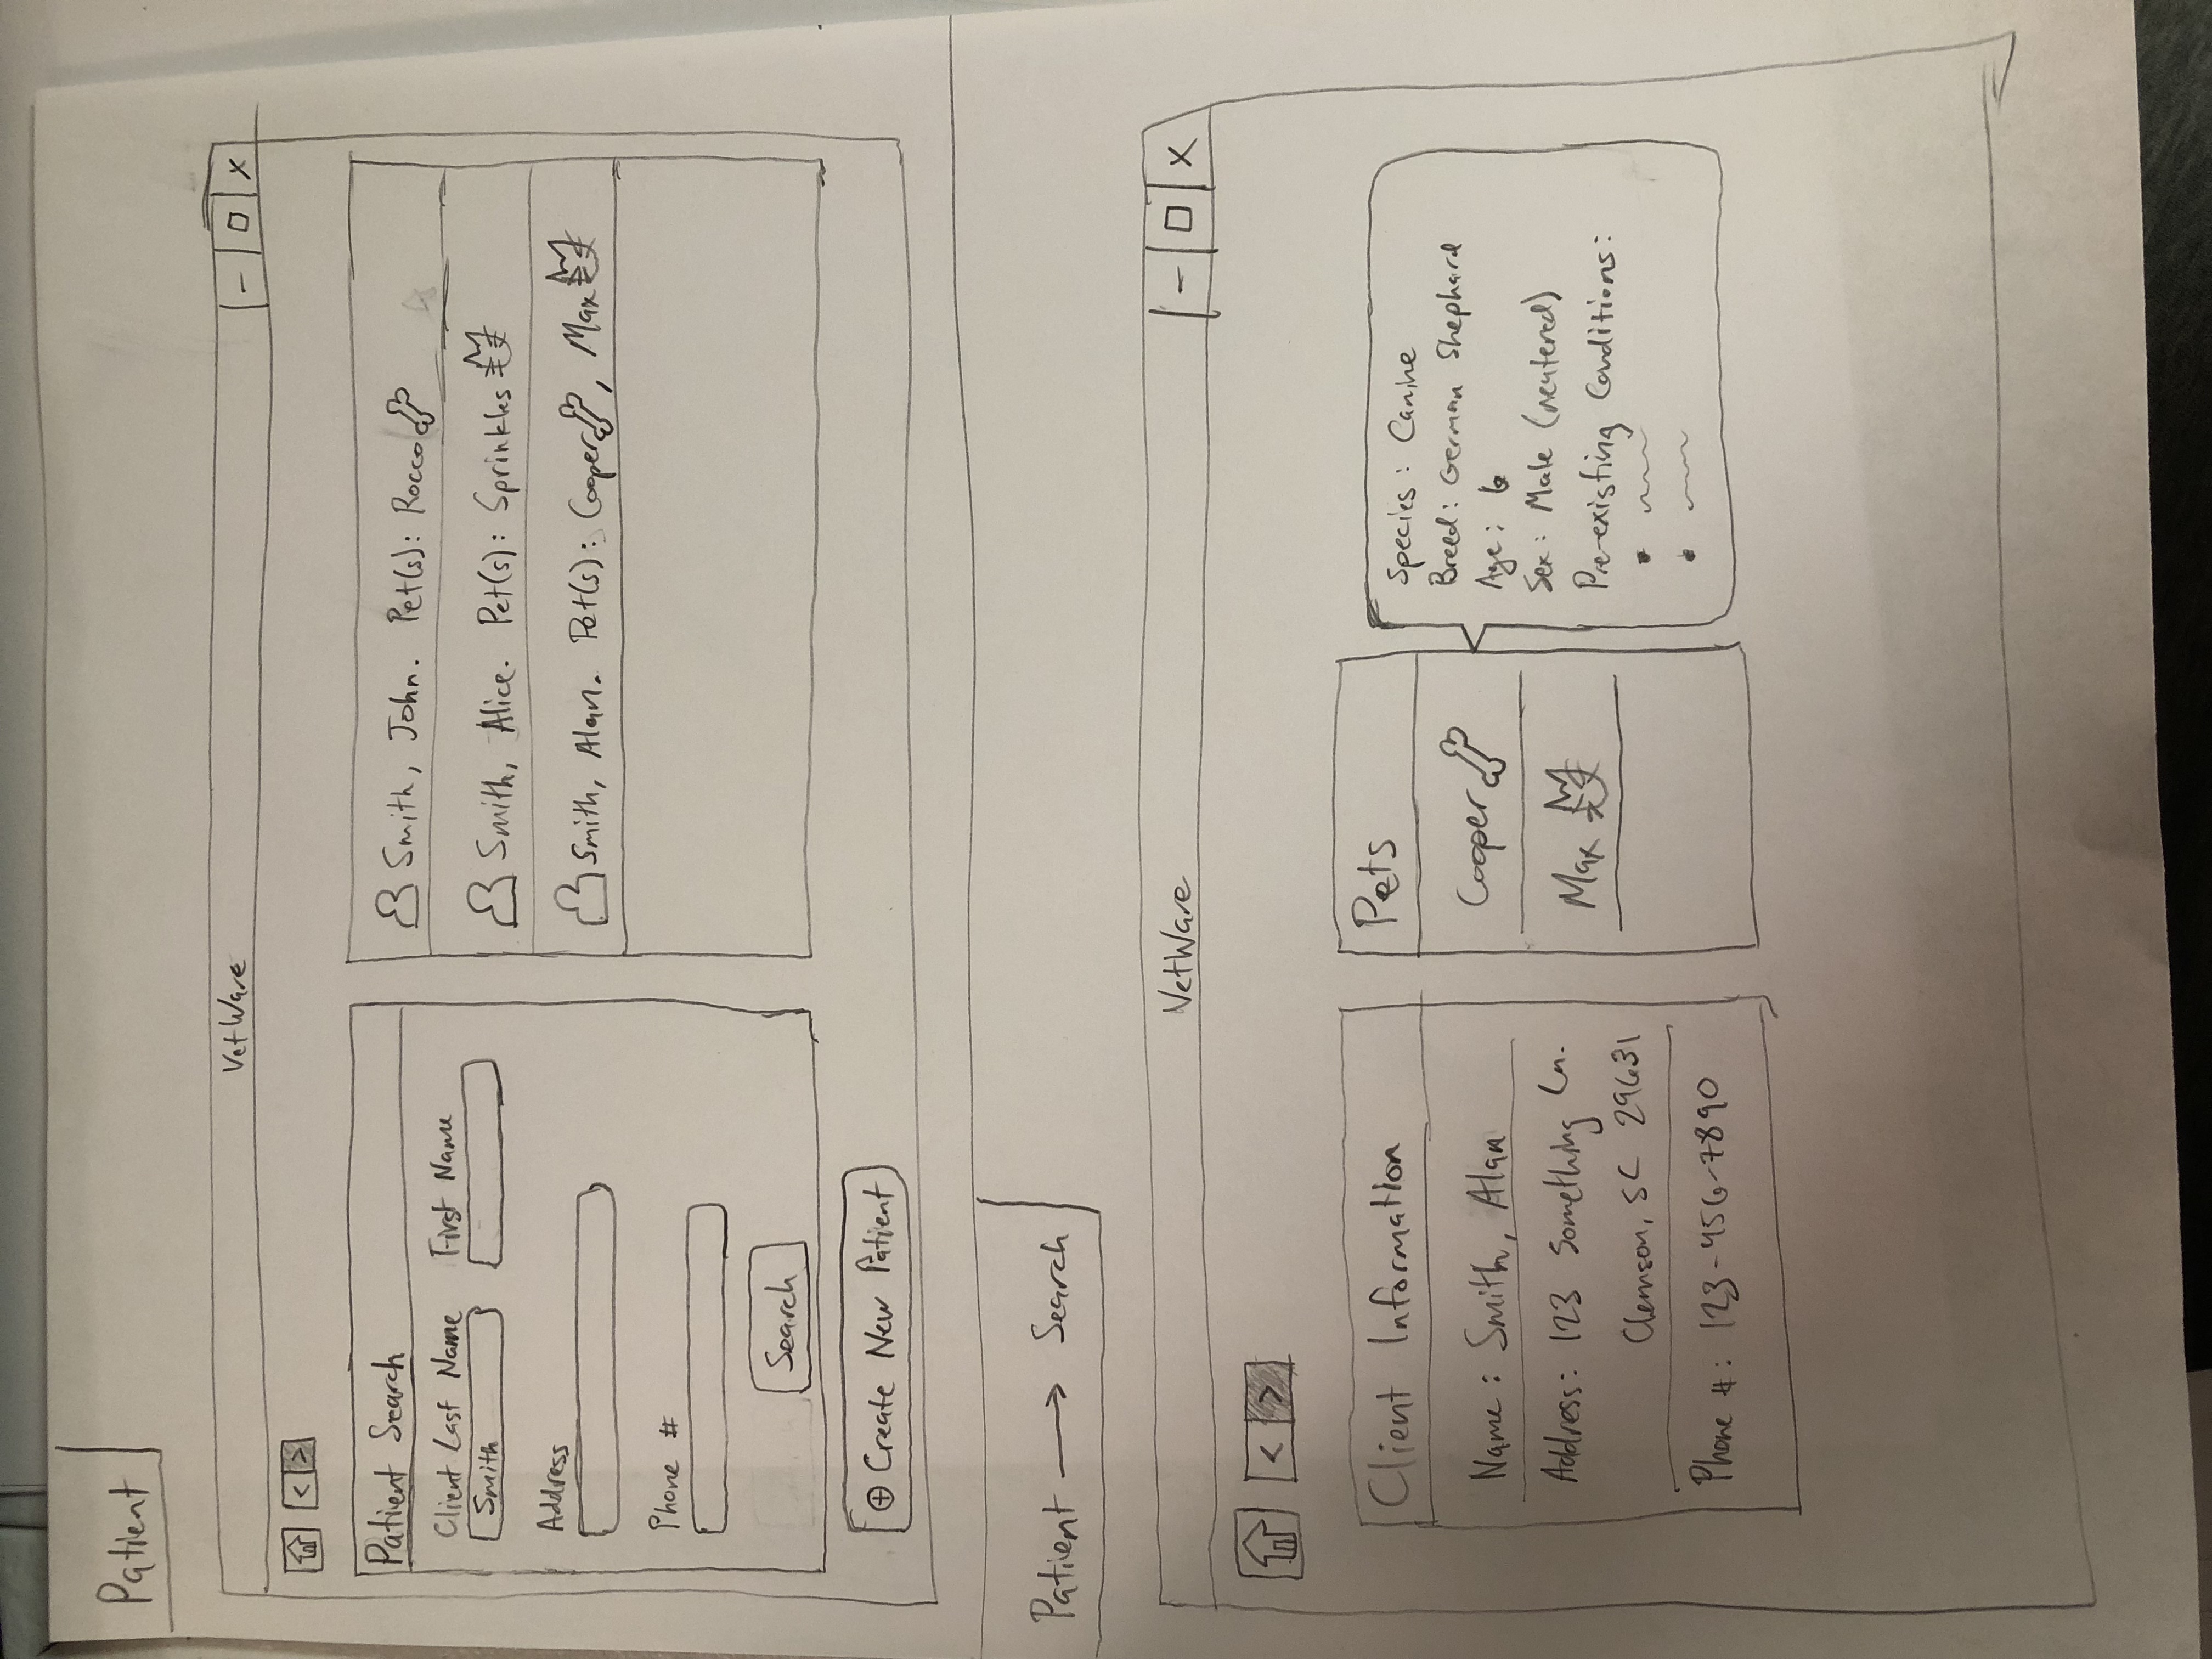 Patient
VetWare
- □ X
< >
Patient Search
Client Last Name First Name
Smith
Address
Phone #
Search
⊕ Create New Patient
Smith, John. Pet(s): Rocco
Smith, Alice. Pet(s): Sprinkles
Smith, Alan. Pet(s): Cooper, Max
Patient → Search
VetWare
- □ X
< >
Client Information
Name: Smith, Alan
Address: 123 Something Ln.
Clemson, SC 29631
Phone #: 123-456-7890
Pets
Cooper
Max
Species: Canine
Breed: German Shephard
Age: 6
Sex: Male (neutered)
Pre-existing Conditions: